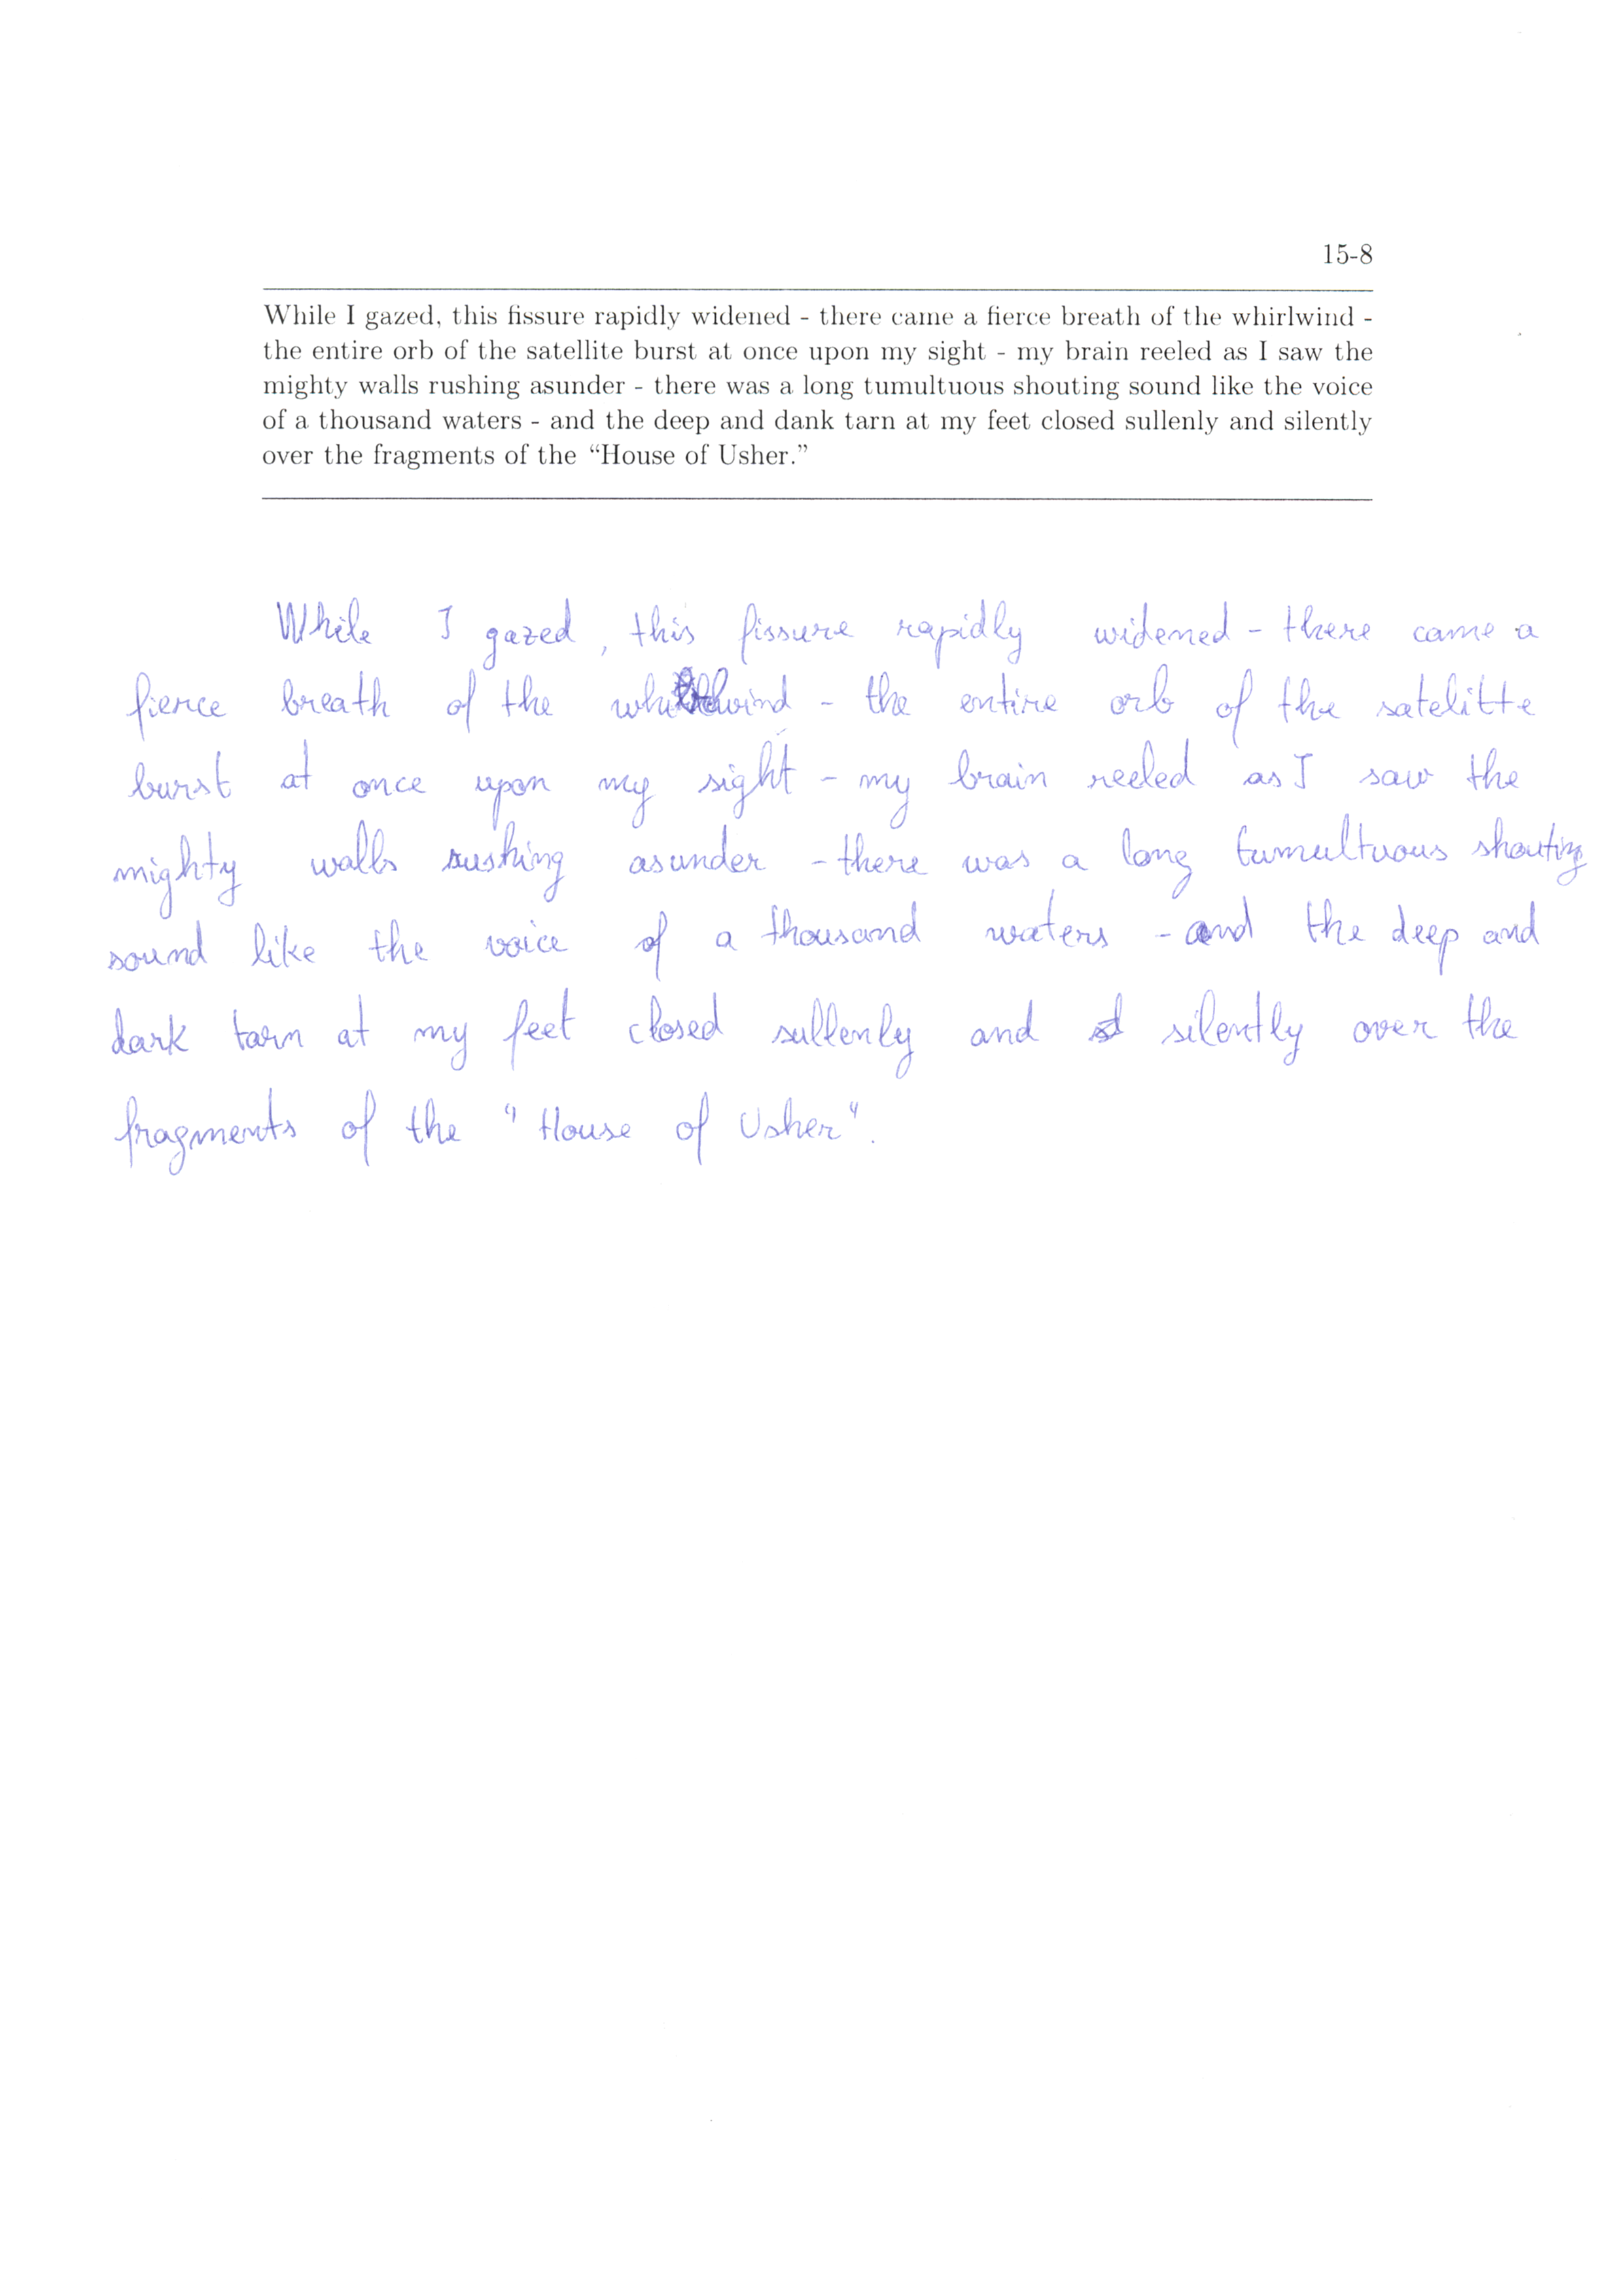 15-8
While I gazed, this fissure rapidly widened - there came a fierce breath of the whirlwind -
the entire orb of the satellite burst at once upon my sight - my brain reeled as I saw the
mighty walls rushing asunder - there was a long tumultuous shouting sound like the voice
of a thousand waters - and the deep and dank tarn at my feet closed sullenly and silently
over the fragments of the “House of Usher.”
While I gazed, this fissure rapidly widened - there came a
fierce breath of the - the entire orb of the satelitte
burst at once upon my sight - my brain reeled as I saw the
mighty walls rushing asunder - there was a long tumultuous shouting
sound like the voice of a thousand waters - and the deep and
dark tarn at my feet closed sullenly and silently over the
fragments of the "House of Usher".